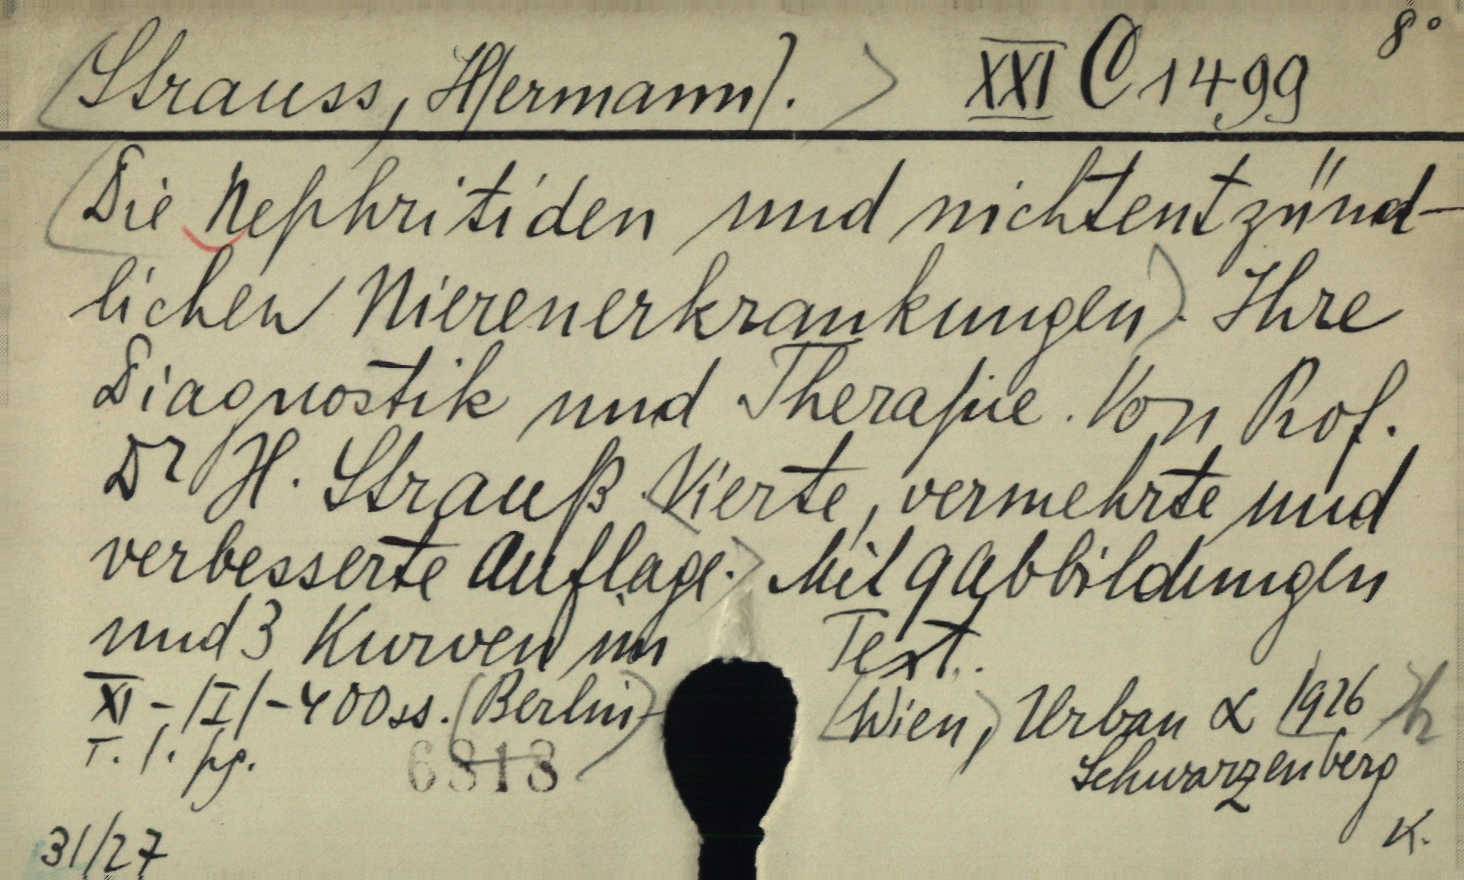 Strauss, H/ermann/. XXI C 1499 8°
Die Nephritiden und nichtentzünd-
lichen Nierenerkrankungen. Ihre
Diagnostik und Therapie. Von Prof.
Dr H. Strauß. Vierte, vermehrte und
verbesserte Auflage. Mit 9 Abbildungen
und 3 Kurven im Text.
XI - /I/ - 400 ss. Berlin - Wien, Urban & 1926
Schwarzenberg
T. l. pg. 6818
31/27 K.